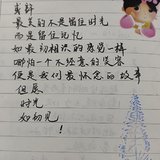 莫许
最美的不是留住时光
而是留住记忆
如最初相识的感觉一样
哪怕一个不经意的笑容
便是我们最怀念的故事
但愿
时光
如初见
！